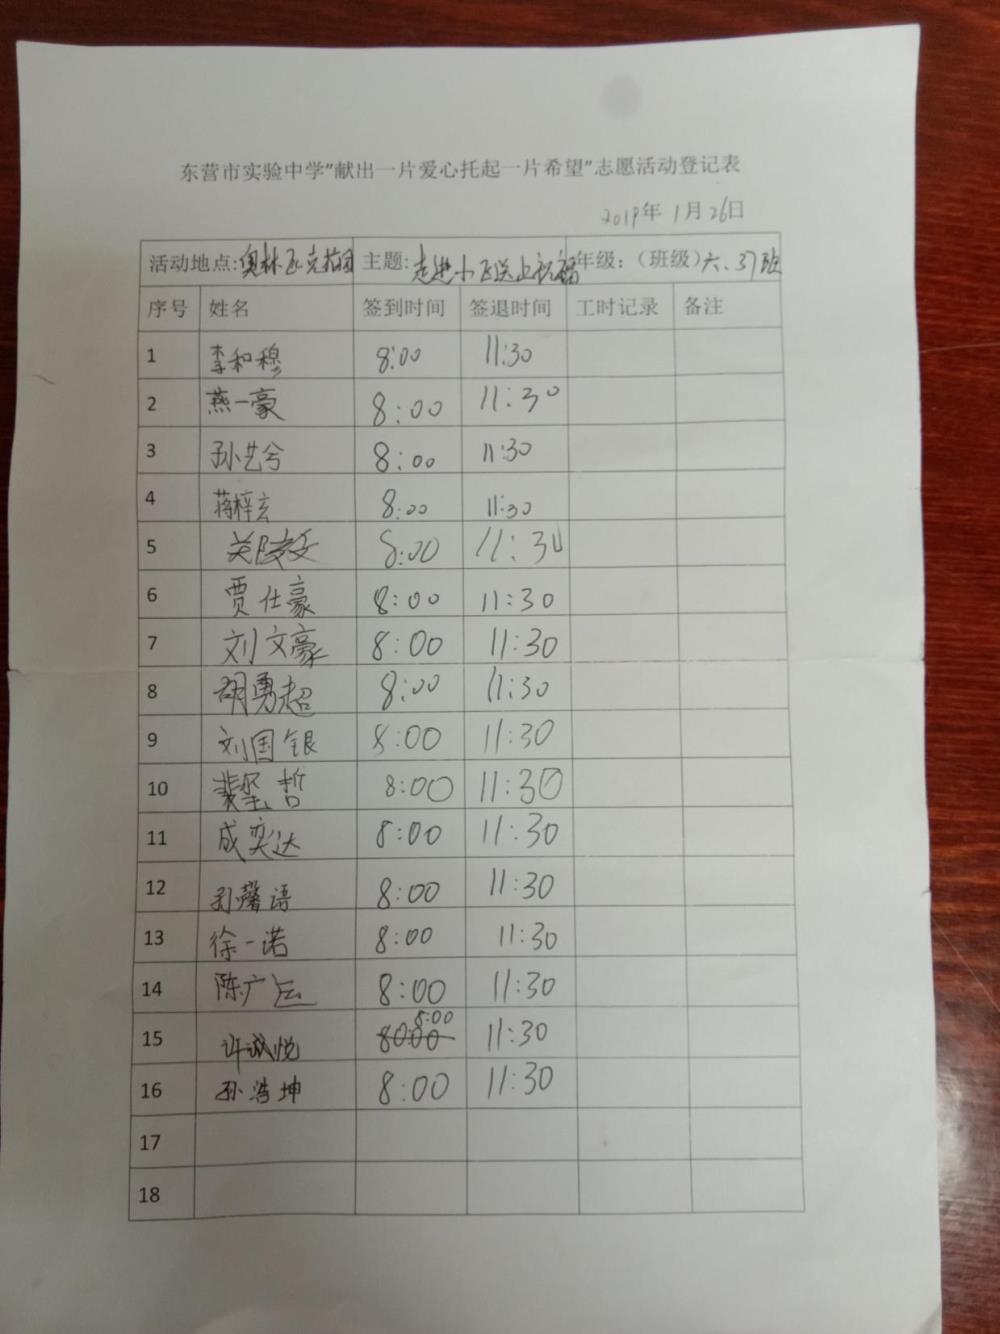 东营市实验中学"献出一片爱心托起一片希望"志愿活动登记表
2019年 1月 26日
活动地点:奥林匹克花园 主题:走进小区送上祝福 年级:(班级)六、37班
序号 姓名 签到时间 签退时间 工时记录 备注
1 李和穆 8:00 11:30
2 燕一豪 8:00 11:30
3 孙艺兮 8:00 11:30
4 蒋梓玄 8:00 11:30
5 8:00 11:30
6 贾仕豪 8:00 11:30
7 刘文豪 8:00 11:30
8 胡勇超 8:00 11:30
9 刘国银 8:00 11:30
10 8:00 11:30
11 成奕达 8:00 11:30
12 孙馨语 8:00 11:30
13 徐一诺 8:00 11:30
14 陈广运 8:00 11:30
15 许诚悦 8:00 11:30
16 孙浩坤 8:00 11:30
17
18